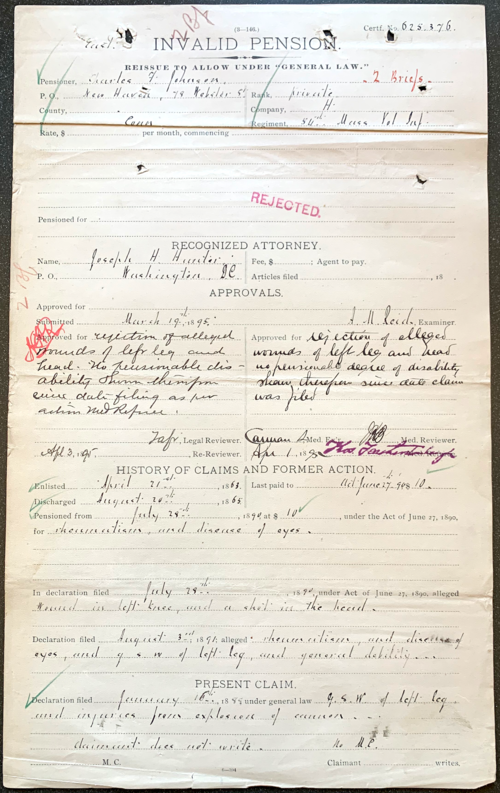 (3-146.)
Certf. No. 625.376.
INVALID PENSION.
REISSUE TO ALLOW UNDER "GENERAL LAW."
Pensioner, Charles F. Johnson. 2 Briefs.
P. O., New Haven, 78 Webster St Rank, private
County, Company, H
Conn Regiment, 54th Mass Vol Inf.
Rate, $ per month, commencing
REJECTED.
Pensioned for
RECOGNIZED ATTORNEY.
Name, Joseph H. Hunter Fee, $ ; Agent to pay.
P. O. Washington, D.C. Articles filed , 18
APPROVALS.
Approved for
Submitted March 19th, 1895. M. Reid, Examiner.
Approved for rejection of alleged
wounds of left leg and
head. No pensionable dis-
ability shown therefrom
since date filing as per
action Med Referee.
Approved for rejection of alleged
wounds of left leg and head
no pensionable degree of disability
shown therefrom since date claim
was filed
, Legal Reviewer. Med. Ex'r. Med. Reviewer.
Apl 3, 95. , Re-Reviewer. Apr 1, 95
HISTORY OF CLAIMS AND FORMER ACTION.
Enlisted April 21st, 1863. Last paid to Act June 27th 90 $ 10.
Discharged August 20th, 1865
Pensioned from July 28th, 1890 at $ 10, under the Act of June 27, 1890,
for rheumatism, and disease of eyes.
In declaration filed July 28th, 1890, under Act of June 27, 1890, alleged
Wound in left knee, and a shot in the head.
Declaration filed August 3rd 1891, alleged rheumatism, and disease of
eyes, and g. s. w. of left leg, and general debility.
PRESENT CLAIM.
Declaration filed January 16th, 18 under general law G. S. W. of left leg
and injuries from explosion of cannon.
claimant does not write. No M.C.
M. C. Claimant writes.